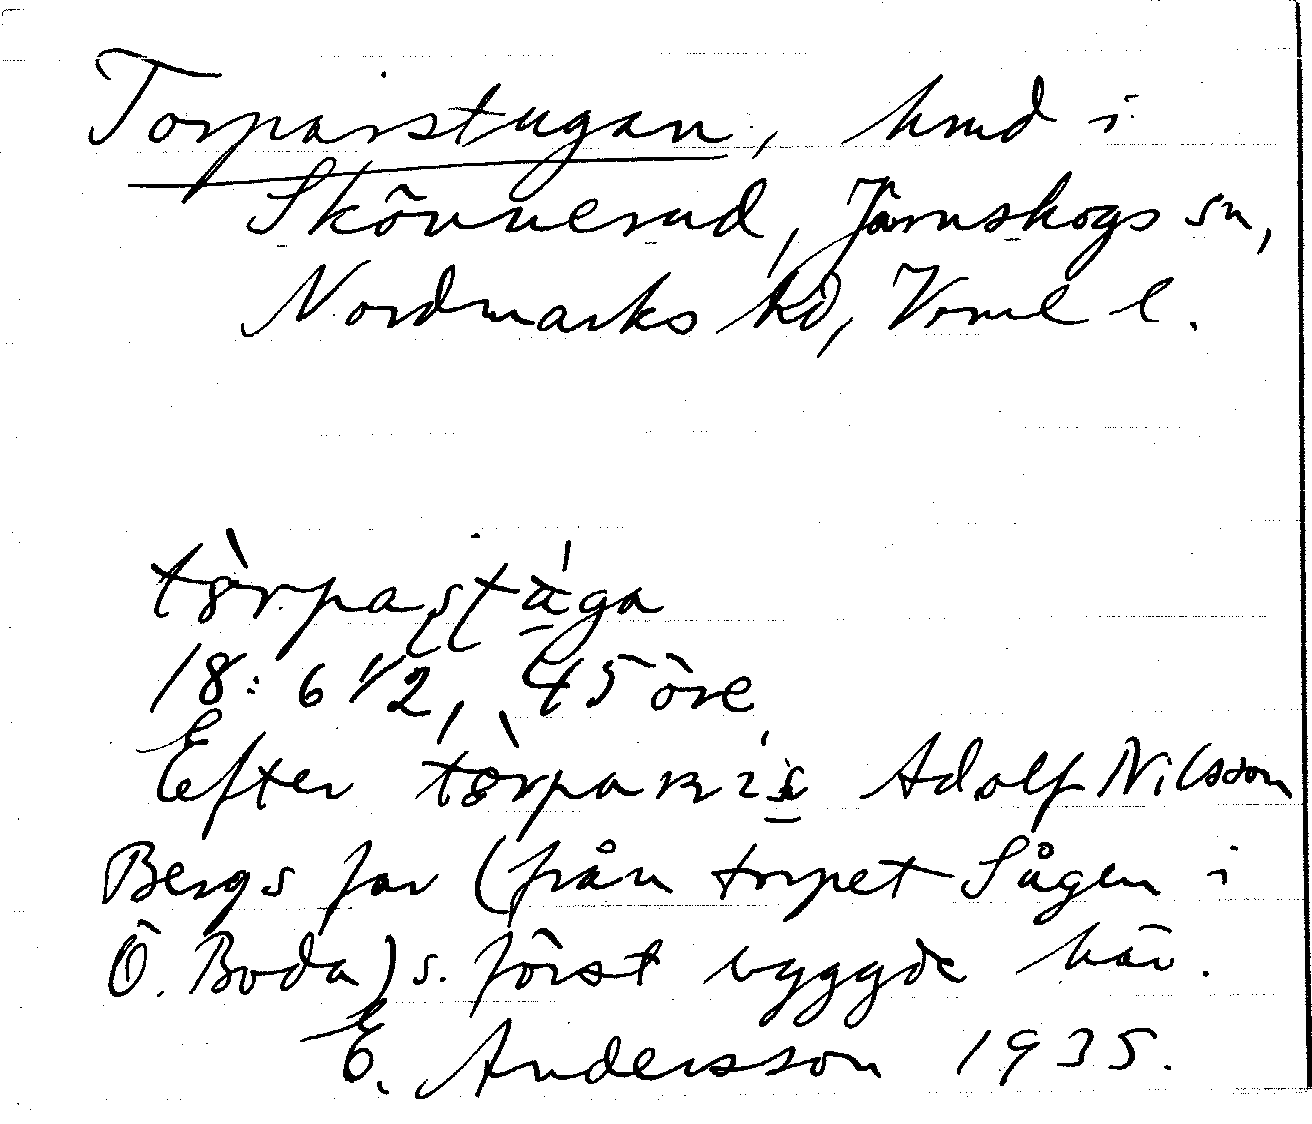 Torparstugan, hmd i
Skönnerud, Järnskogs sn,
Nordmarks hd, Vrml l.
tòrpastá̱ga
18:6 1/2, 45 öre
Efter tòrparn Adolf Nilsson
Bergs far (från torpet Sågen i
Ö. Boda) s. först byggde här.
E. Andersson 1935.